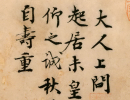 大人上問
起居未皇
仰之誠秋
自壽重